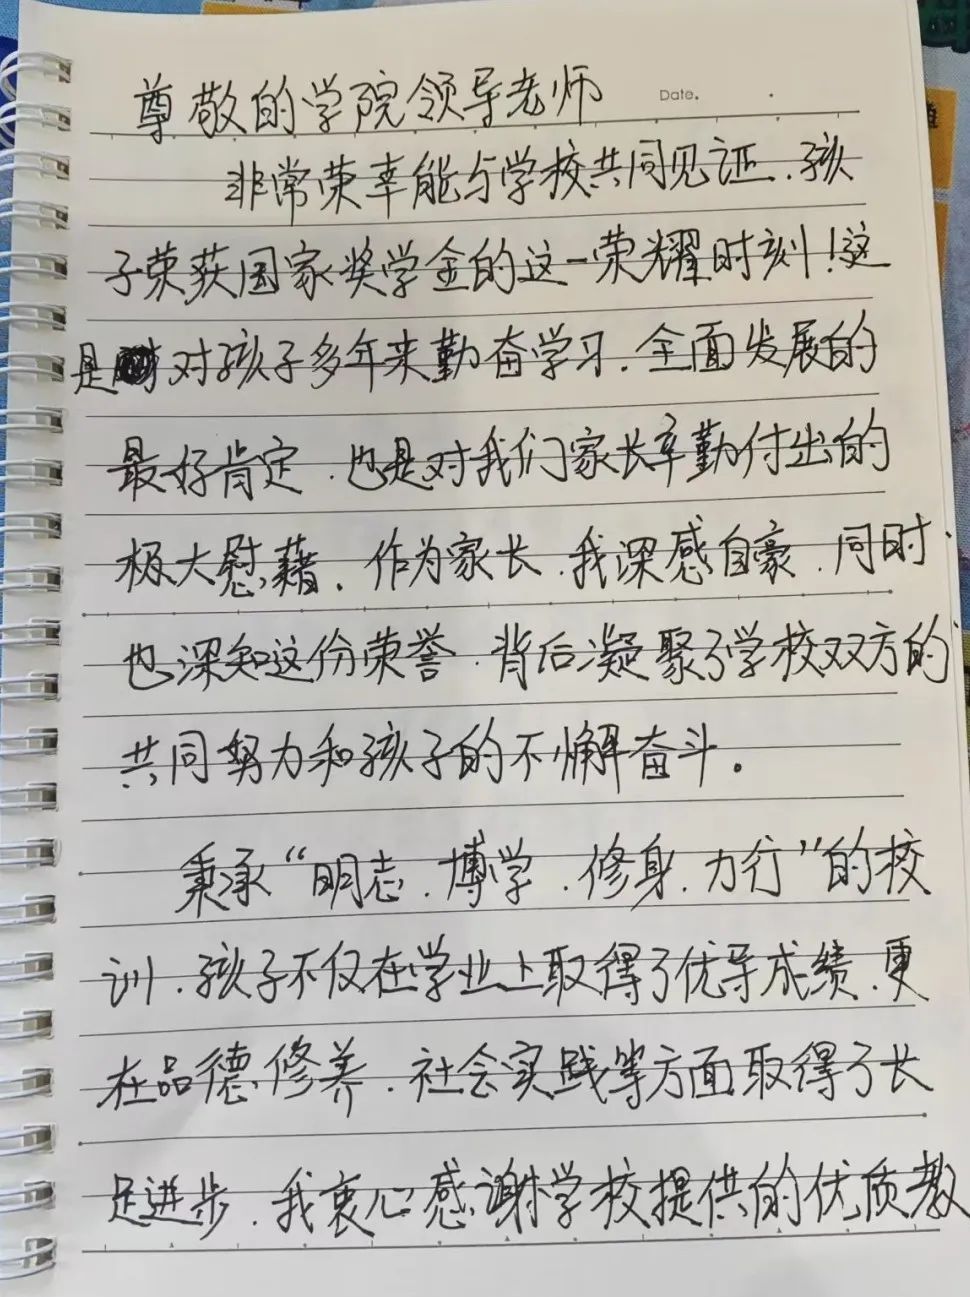 Date.
尊敬的学院领导老师
非常荣幸能与学校共同见证、孩
子荣获国家奖学金的这一荣耀时刻！这
是对孩子多年来勤奋学习、全面发展的
最好肯定、也是对我们家长辛勤付出的
极大慰藉、作为家长、我深感自豪、同时、
也深知这份荣誉、背后凝聚了学校双方的
共同努力和孩子的不懈奋斗。
秉承“明志、博学、修身、力行”的校
训、孩子不仅在学业上取得了优异成绩、更
在品德修养、社会实践等方面取得了长
足进步、我衷心感谢学校提供的优质教